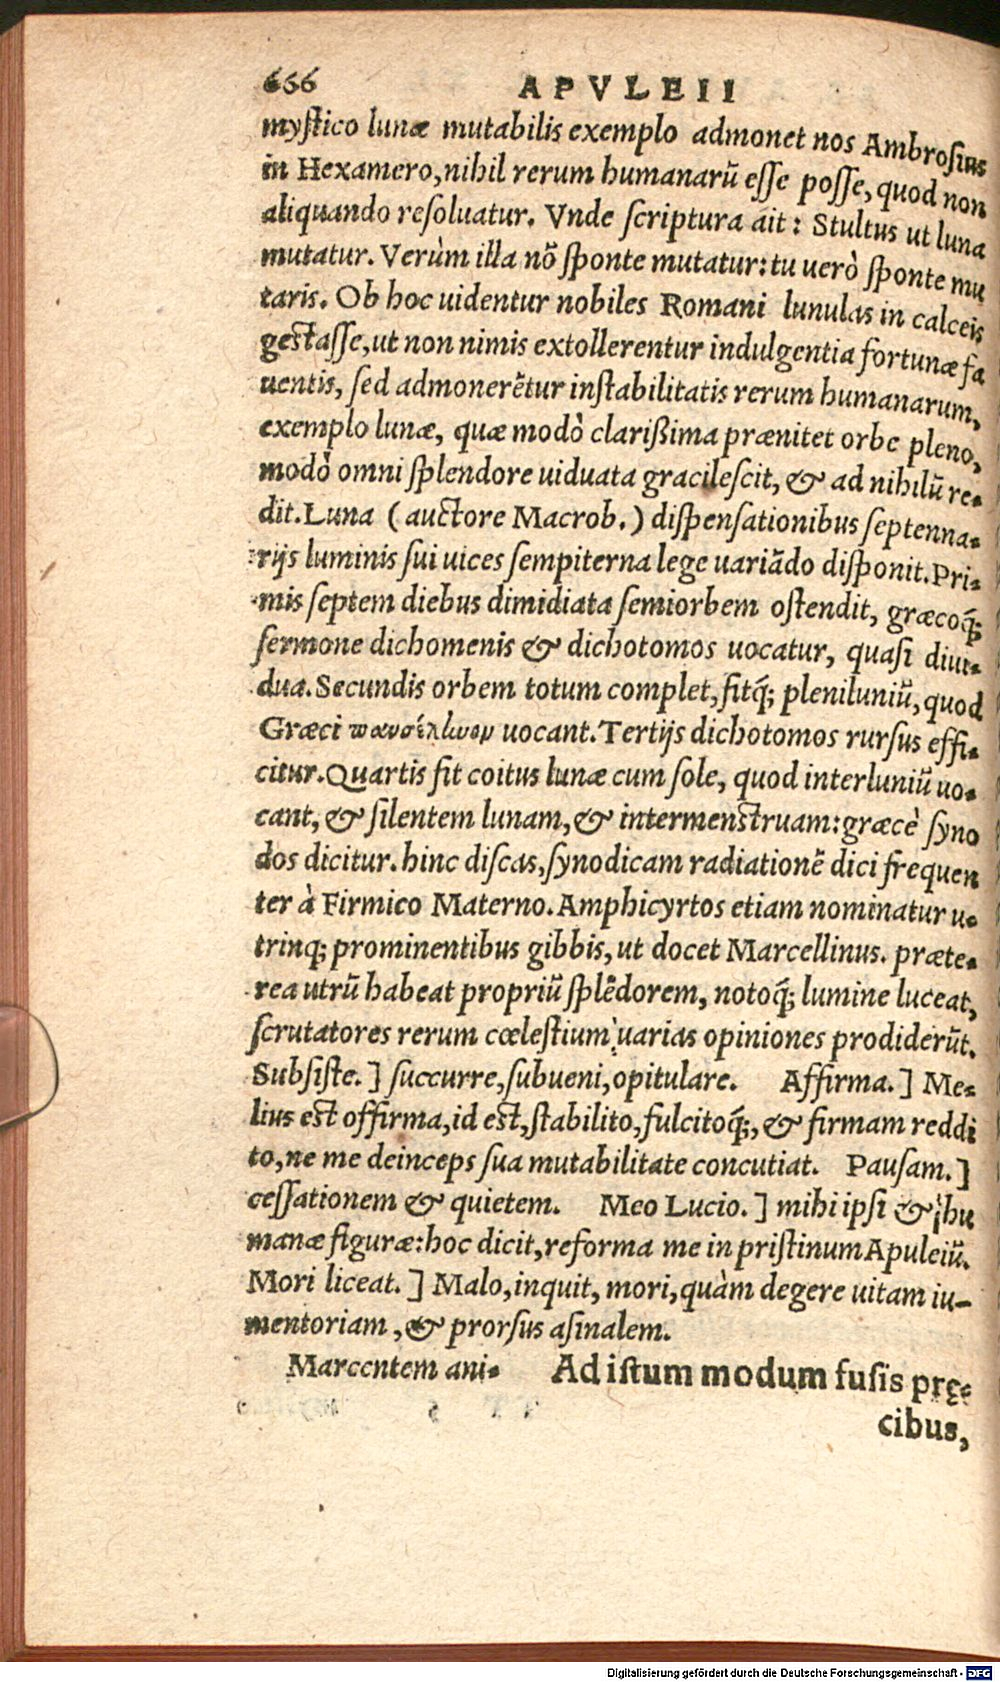 656 APVLEII
mystico lunæ mutabilis exemplo admonet nos Ambrosius
in Hexamero, nihil rerum humanarũ esse posse, quod non
aliquando resoluatur. Vnde scriptura ait: Stultus ut luna
mutatur. Verùm illa nõ sponte mutatur: tu uerò sponte mu
taris. Ob hoc uidentur nobiles Romani lunulas in calceis
gestasse, ut non nimis extollerentur indulgentia fortunæ fa
uentis, sed admonerẽtur instabilitatis rerum humanarum,
exemplo lunæ, quæ modò clarißima prænitet orbe pleno,
modò omni splendore uiduata gracilescit, & ad nihilũ re-
dit. Luna (auctore Macrob.) dispensationibus septenna-
rijs luminis sui uices sempiterna lege uariãdo disponit. Pri-
mis septem diebus dimidiata semiorbem ostendit, græcoq́;
sermone dichomenis & dichotomos uocatur, quasi diui-
dua. Secundis orbem totum complet, fitq́; pleniluniũ, quod
Græci πανσέληνον uocant. Tertijs dichotomos rursus effi-
citur. Quartis fit coitus lunæ cum sole, quod interluniũ uo-
cant, & silentem lunam, & intermenstruam: græcè syno
dos dicitur. hinc discas, synodicam radiationẽ dici frequen
ter à Firmico Materno. Amphicyrtos etiam nominatur u-
trinq; prominentibus gibbis, ut docet Marcellinus. præte-
rea utrũ habeat propriũ splẽdorem, notoq́; lumine luceat,
scrutatores rerum cœlestium uarias opiniones prodiderũt.
Subsiste.] succurre, subueni, opitulare. Affirma.] Me-
lius est offirma, id est, stabilito, fulcitoq́;, & firmam reddi
to, ne me deinceps sua mutabilitate concutiat. Pausam.]
cessationem & quietem. Meo Lucio.] mihi ipsi & hu
manæ figuræ: hoc dicit, reforma me in pristinum Apuleiũ.
Mori liceat.] Malo, inquit, mori, quàm degere uitam iu-
mentoriam, & prorsus asinalem.
Marcentem ani- Ad istum modum fusis prę-
cibus,
Digitalisierung gefördert durch die Deutsche Forschungsgemeinschaft - DFG